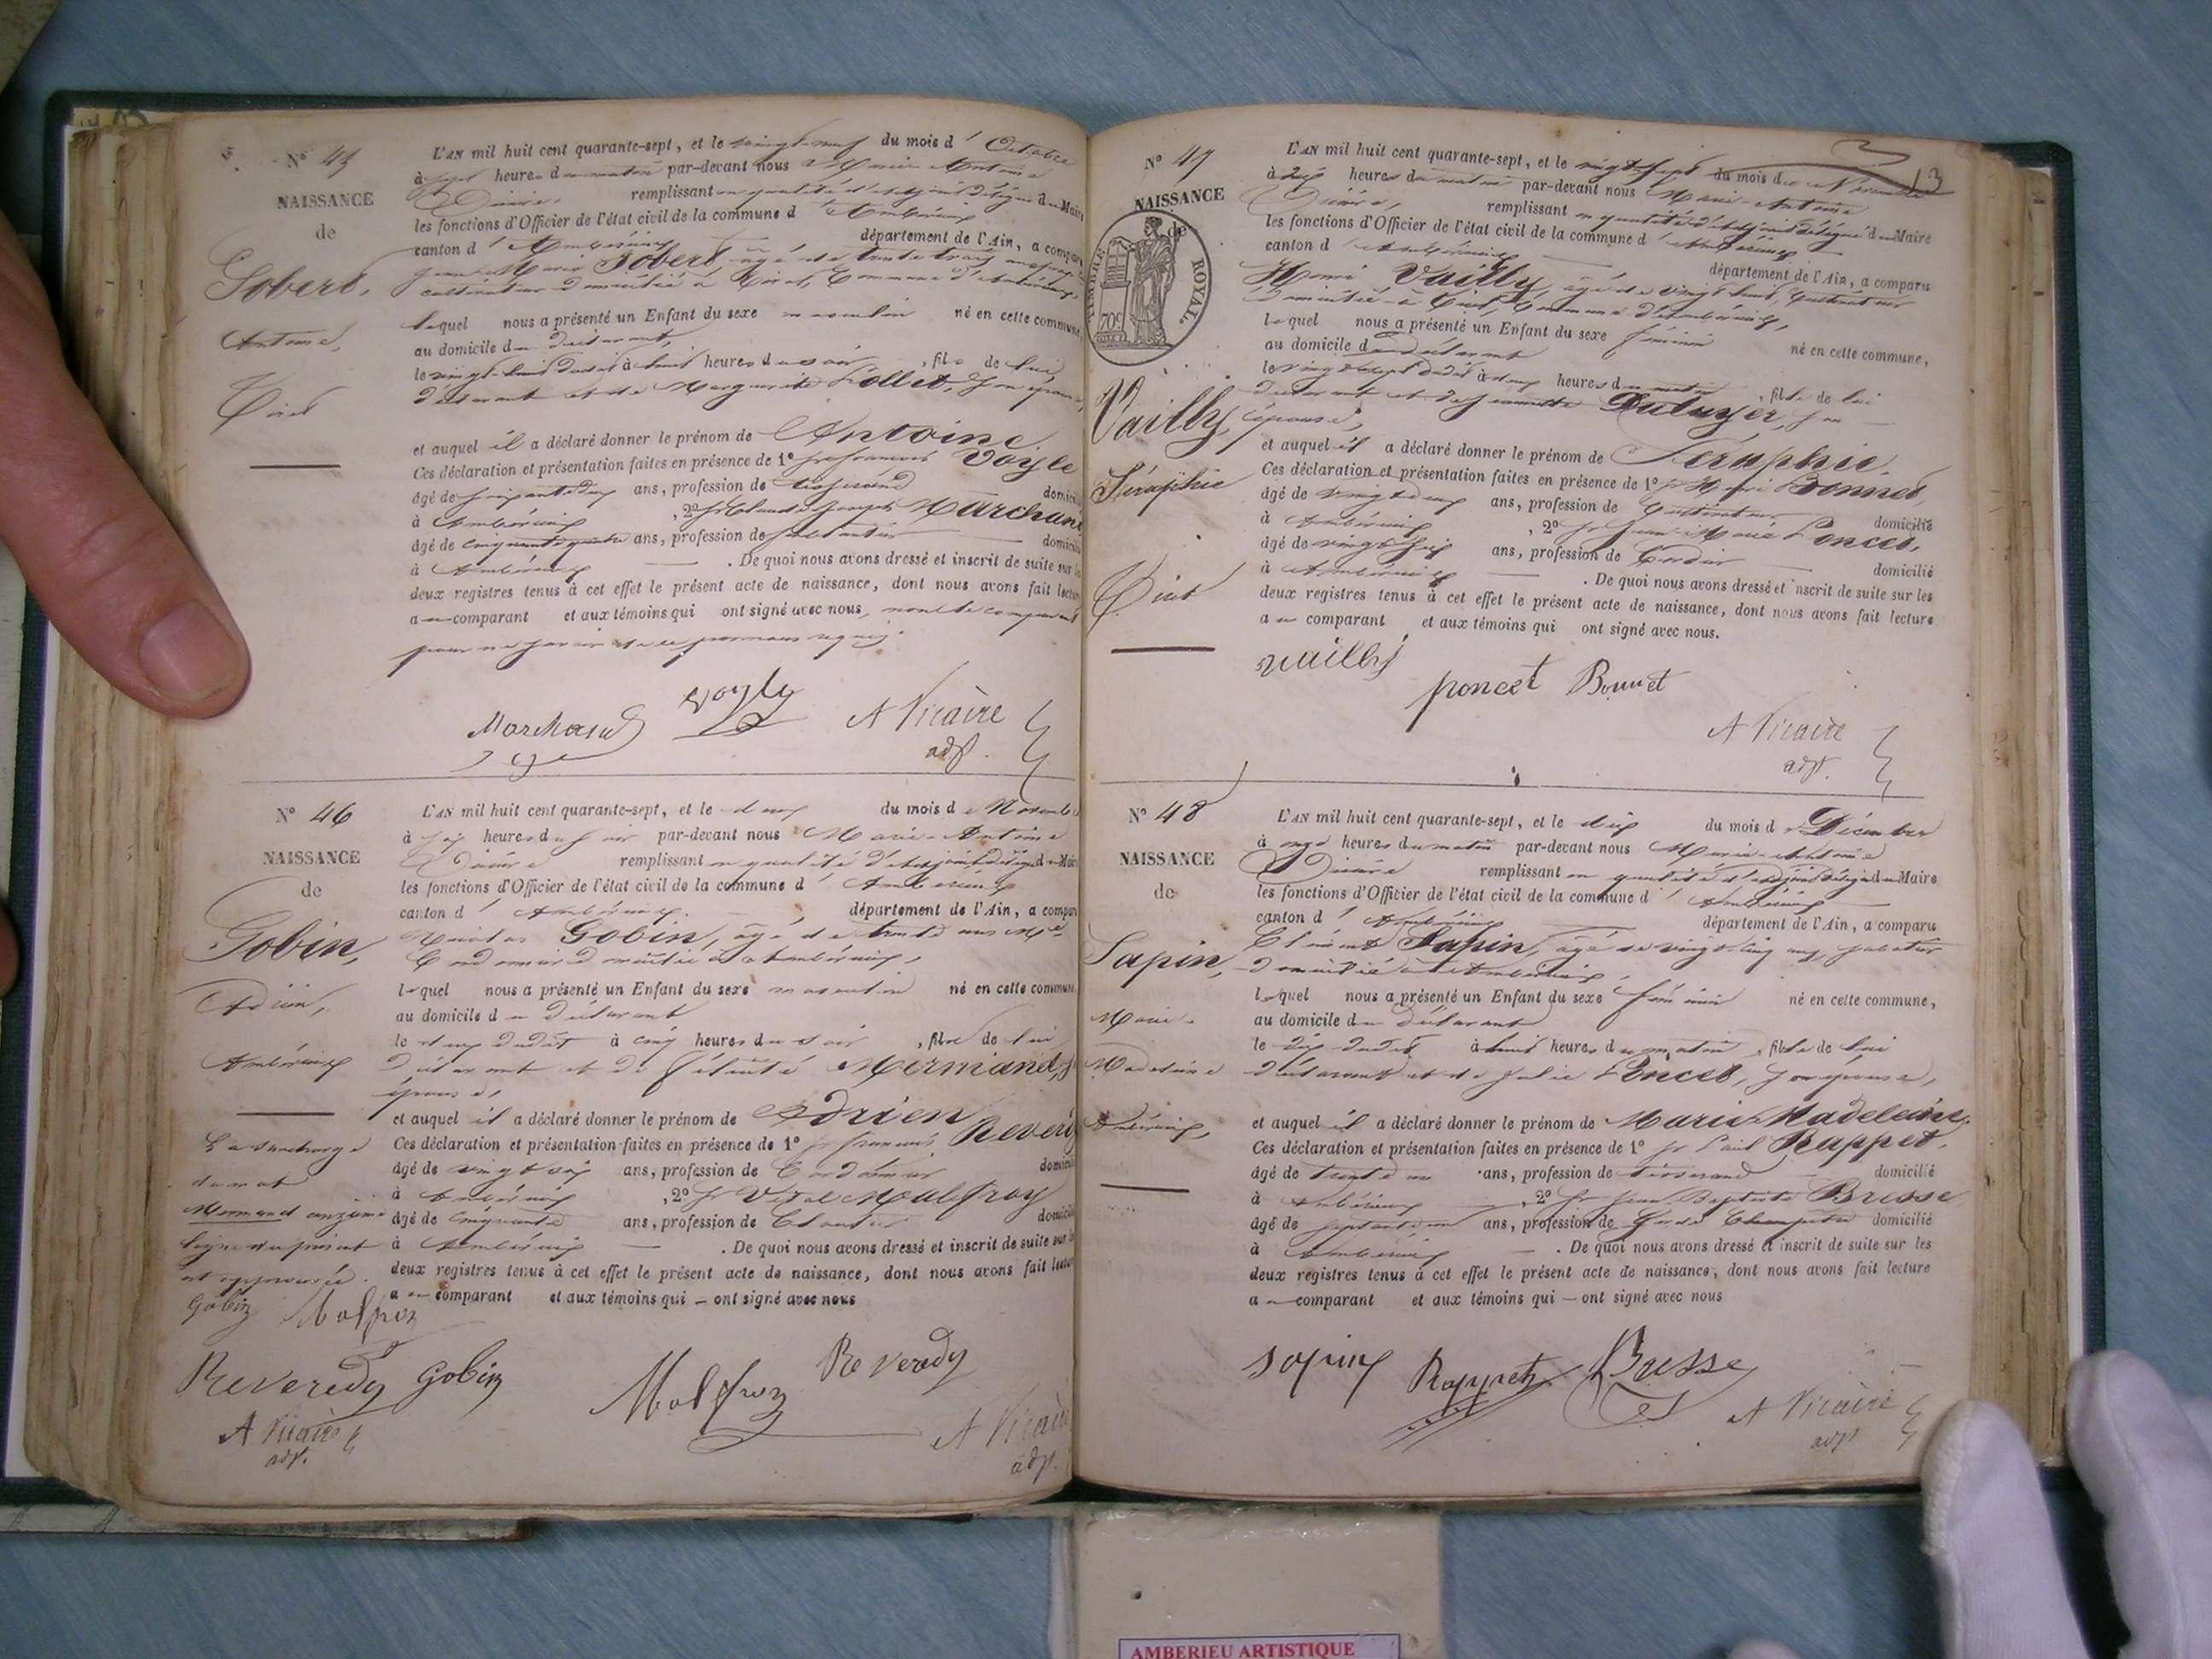 N° 45
NAISSANCE
de
Gobert,
Antoine,
Tiret
L'AN mil huit cent quarante-sept, et le vingt-neuf du mois d'Octobre
à sept heures du matin par-devant nous Marie Antoine
Vicaire, remplissant en qualité d'adjoint délégué du Maire
les fonctions d'Officier de l'état civil de la commune d'Ambérieux
canton d'Ambérieux département de l'Ain, a comparu
Jean Marie Gobert âgé de trente trois ans
cultivateur domicilié à Tiret, Commune d'Ambérieux,
lequel nous a présenté un Enfant du sexe masculin né en cette commune
au domicile du déclarant,
le vingt-huit dudit à huit heures du soir, fils de lui
déclarant et de Marguerite Collet, son épouse,
et auquel il a déclaré donner le prénom de Antoine.
Ces déclaration et présentation faites en présence de 1° sr françois Voyle
âgé de ans, profession de tisserand domicilié
à Ambérieux, 2° sr Claude Joseph Marchand
âgé de cinquante quatre ans, profession de domicilié
à Ambérieux. De quoi nous avons dressé et inscrit de suite sur les
deux registres tenus à cet effet le présent acte de naissance, dont nous avons fait lecture
au comparant et aux témoins qui ont signé avec nous, non le comparant
pour ne savoir de ce
Marchand Voyle A Vicaire
adjt.
N° 46
NAISSANCE
de
Gobin,
Adrien,
Ambérieux
La surcharge
du mot
Mermand onzième
ligne du présent
est approuvée.
Gobin Malfroy
Reveredy
A Vicaire
adjt.
L'AN mil huit cent quarante-sept, et le deux du mois de Novembre
à six heures du soir par-devant nous Marie-Antoine
Vicaire remplissant en qualité d'adjoint délégué du Maire
les fonctions d'Officier de l'état civil de la commune d'Ambérieux
canton d'Ambérieux. département de l'Ain, a comparu
Nicolas Gobin, âgé de trente ans Me
Cordonnier domicilié à Ambérieux,
lequel nous a présenté un Enfant du sexe masculin né en cette commune
au domicile du déclarant
le deux dudit à cinq heures du soir, fils de lui
déclarant et de Mermand, s
épouse,
et auquel il a déclaré donner le prénom de Adrien
Ces déclaration et présentation faites en présence de 1° sr françois Reveredy
âgé de vingt six ans, profession de Cordonnier domicilié
à Ambérieux, 2° sr Vital Malfroy
âgé de cinquante ans, profession de domicilié
à Ambérieux. De quoi nous avons dressé et inscrit de suite sur les
deux registres tenus à cet effet le présent acte de naissance, dont nous avons fait lecture
au comparant et aux témoins qui – ont signé avec nous
Gobin Malfroy Reveredy
A Vicaire
adjt.
13
N° 47
NAISSANCE
de
TIMBRE ROYAL.
70c
Vailly,
Séraphie
Tiret
L'AN mil huit cent quarante-sept, et le vingt sept du mois de Novembre
à dix heures du matin par-devant nous Marie-Antoine
Vicaire, remplissant en qualité d'adjoint délégué du Maire
les fonctions d'Officier de l'état civil de la commune d'Ambérieux
canton d'Ambérieux département de l'Ain, a comparu
Henri Vailly, âgé de vingt huit, Cultivateur
domicilié à Tiret, Commune d'Ambérieux,
lequel nous a présenté un Enfant du sexe féminin né en cette commune,
au domicile du déclarant
le vingt-sept dudit à deux heures du matin, fille de lui
déclarant et de Jeannette Dutuyer, son
épouse,
et auquel il a déclaré donner le prénom de Séraphie.
Ces déclaration et présentation faites en présence de 1° sr Henri Bonnet,
âgé de vingt deux ans, profession de Cultivateur domicilié
à Ambérieux, 2° sr Jean-Marie Poncet,
âgé de vingt six ans, profession de Cordier domicilié
à Ambérieux. De quoi nous avons dressé et inscrit de suite sur les
deux registres tenus à cet effet le présent acte de naissance, dont nous avons fait lecture
au comparant et aux témoins qui ont signé avec nous.
vailly
poncet Bonnet
A Vicaire
adjt.
N° 48
NAISSANCE
de
Sapin,
Marie
Madeleine
Ambérieux,
L'AN mil huit cent quarante-sept, et le dix du mois de Décembre
à onze heures du matin par-devant nous Marie-Antoine
Vicaire remplissant en qualité d'adjoint délégué du Maire
les fonctions d'Officier de l'état civil de la commune d'Ambérieux
canton d'Ambérieux département de l'Ain, a comparu
Clément Sapin, âgé de vingt-cinq ans, sabotier
domicilié à Ambérieux,
lequel nous a présenté un Enfant du sexe féminin né en cette commune,
au domicile du déclarant
le dix dudit à huit heures du matin, fille de lui
déclarant et de Julie Poncet, son épouse,
et auquel il a déclaré donner le prénom de Marie Madeleine,
Ces déclaration et présentation faites en présence de 1° sr Paul Rappet,
âgé de trente un ans, profession de tisserand domicilié
à Ambérieux, 2° sr Jean Baptiste Bresse
âgé de ans, profession de Garde Champêtre domicilié
à Ambérieux. De quoi nous avons dressé et inscrit de suite sur les
deux registres tenus à cet effet le présent acte de naissance, dont nous avons fait lecture
au comparant et aux témoins qui – ont signé avec nous
sapin Rappet Bresse
A Vicaire
adjt
AMBERIEU ARTISTIQUE